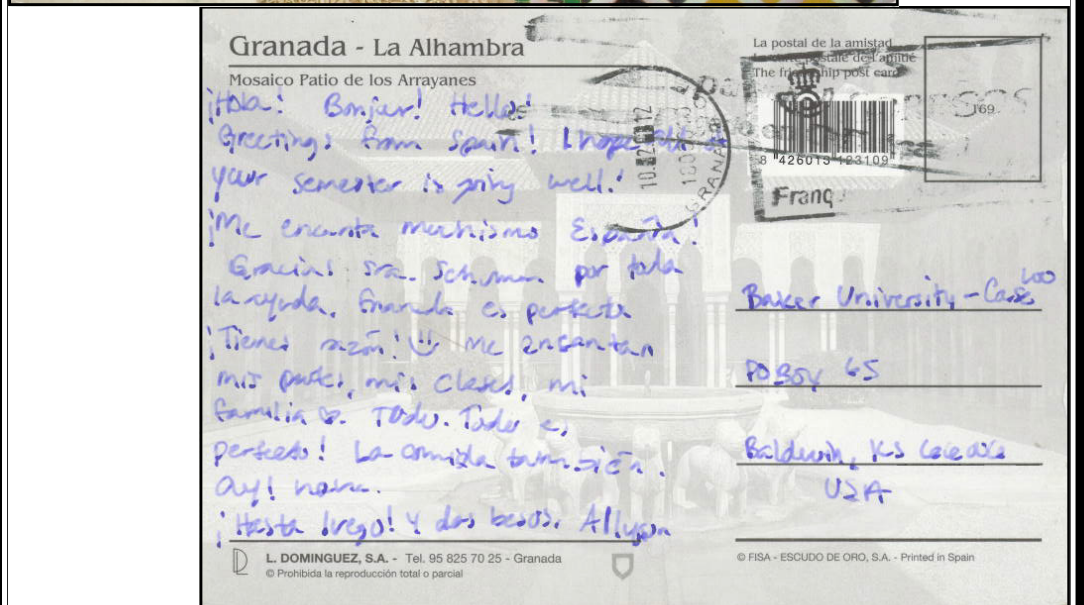 Granada - La Alhambra
Mosaico Patio de los Arrayanes
La postal de la amistad
La carte postale de l'amitié
The friendship post card
169
8 426013 123109
GRANADA
Franq
¡Hola! Bonjour! Hello!
Greetings from Spain! I hope all of
your semester is going well!
¡Me encanta muchismo España!
Gracias sra. Schuman por toda
la ayuda. Granada es perfecta
¡Tienes razón! me encantan
mis padres, mis clases, mi
familia ♡. Todo. Todo es
perfecto! La comida también.
ay!
¡Hasta luego! Y dos besos. Allyson
Baker University - Case
PO Box 65
Baldwin, KS
USA
L. DOMINGUEZ, S.A. - Tel. 95 825 70 25 - Granada
© Prohibida la reproducción total o parcial
© FISA - ESCUDO DE ORO, S.A. - Printed in Spain